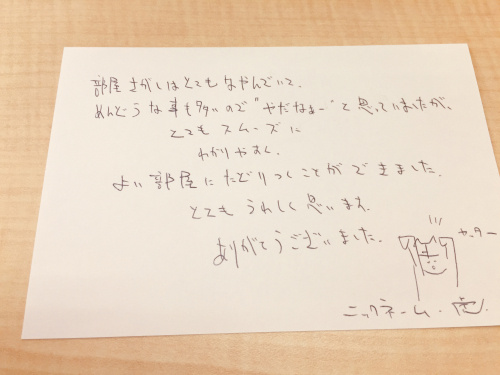 部屋さがしはとてもなやんでいて、
めんどうな事も多いので"やだなぁー"と思っていましたが、
とてもスムーズに
わかりやすく、
よい部屋にたどりつくことができました。
とてもうれしく思います。
ありがとうございました。
ヤッター
ニックネーム・